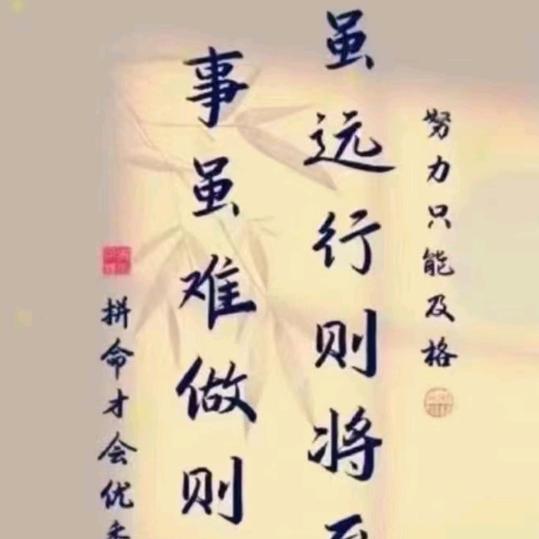 努力只能及格
虽远行则将
事虽难做则
拼命才会优